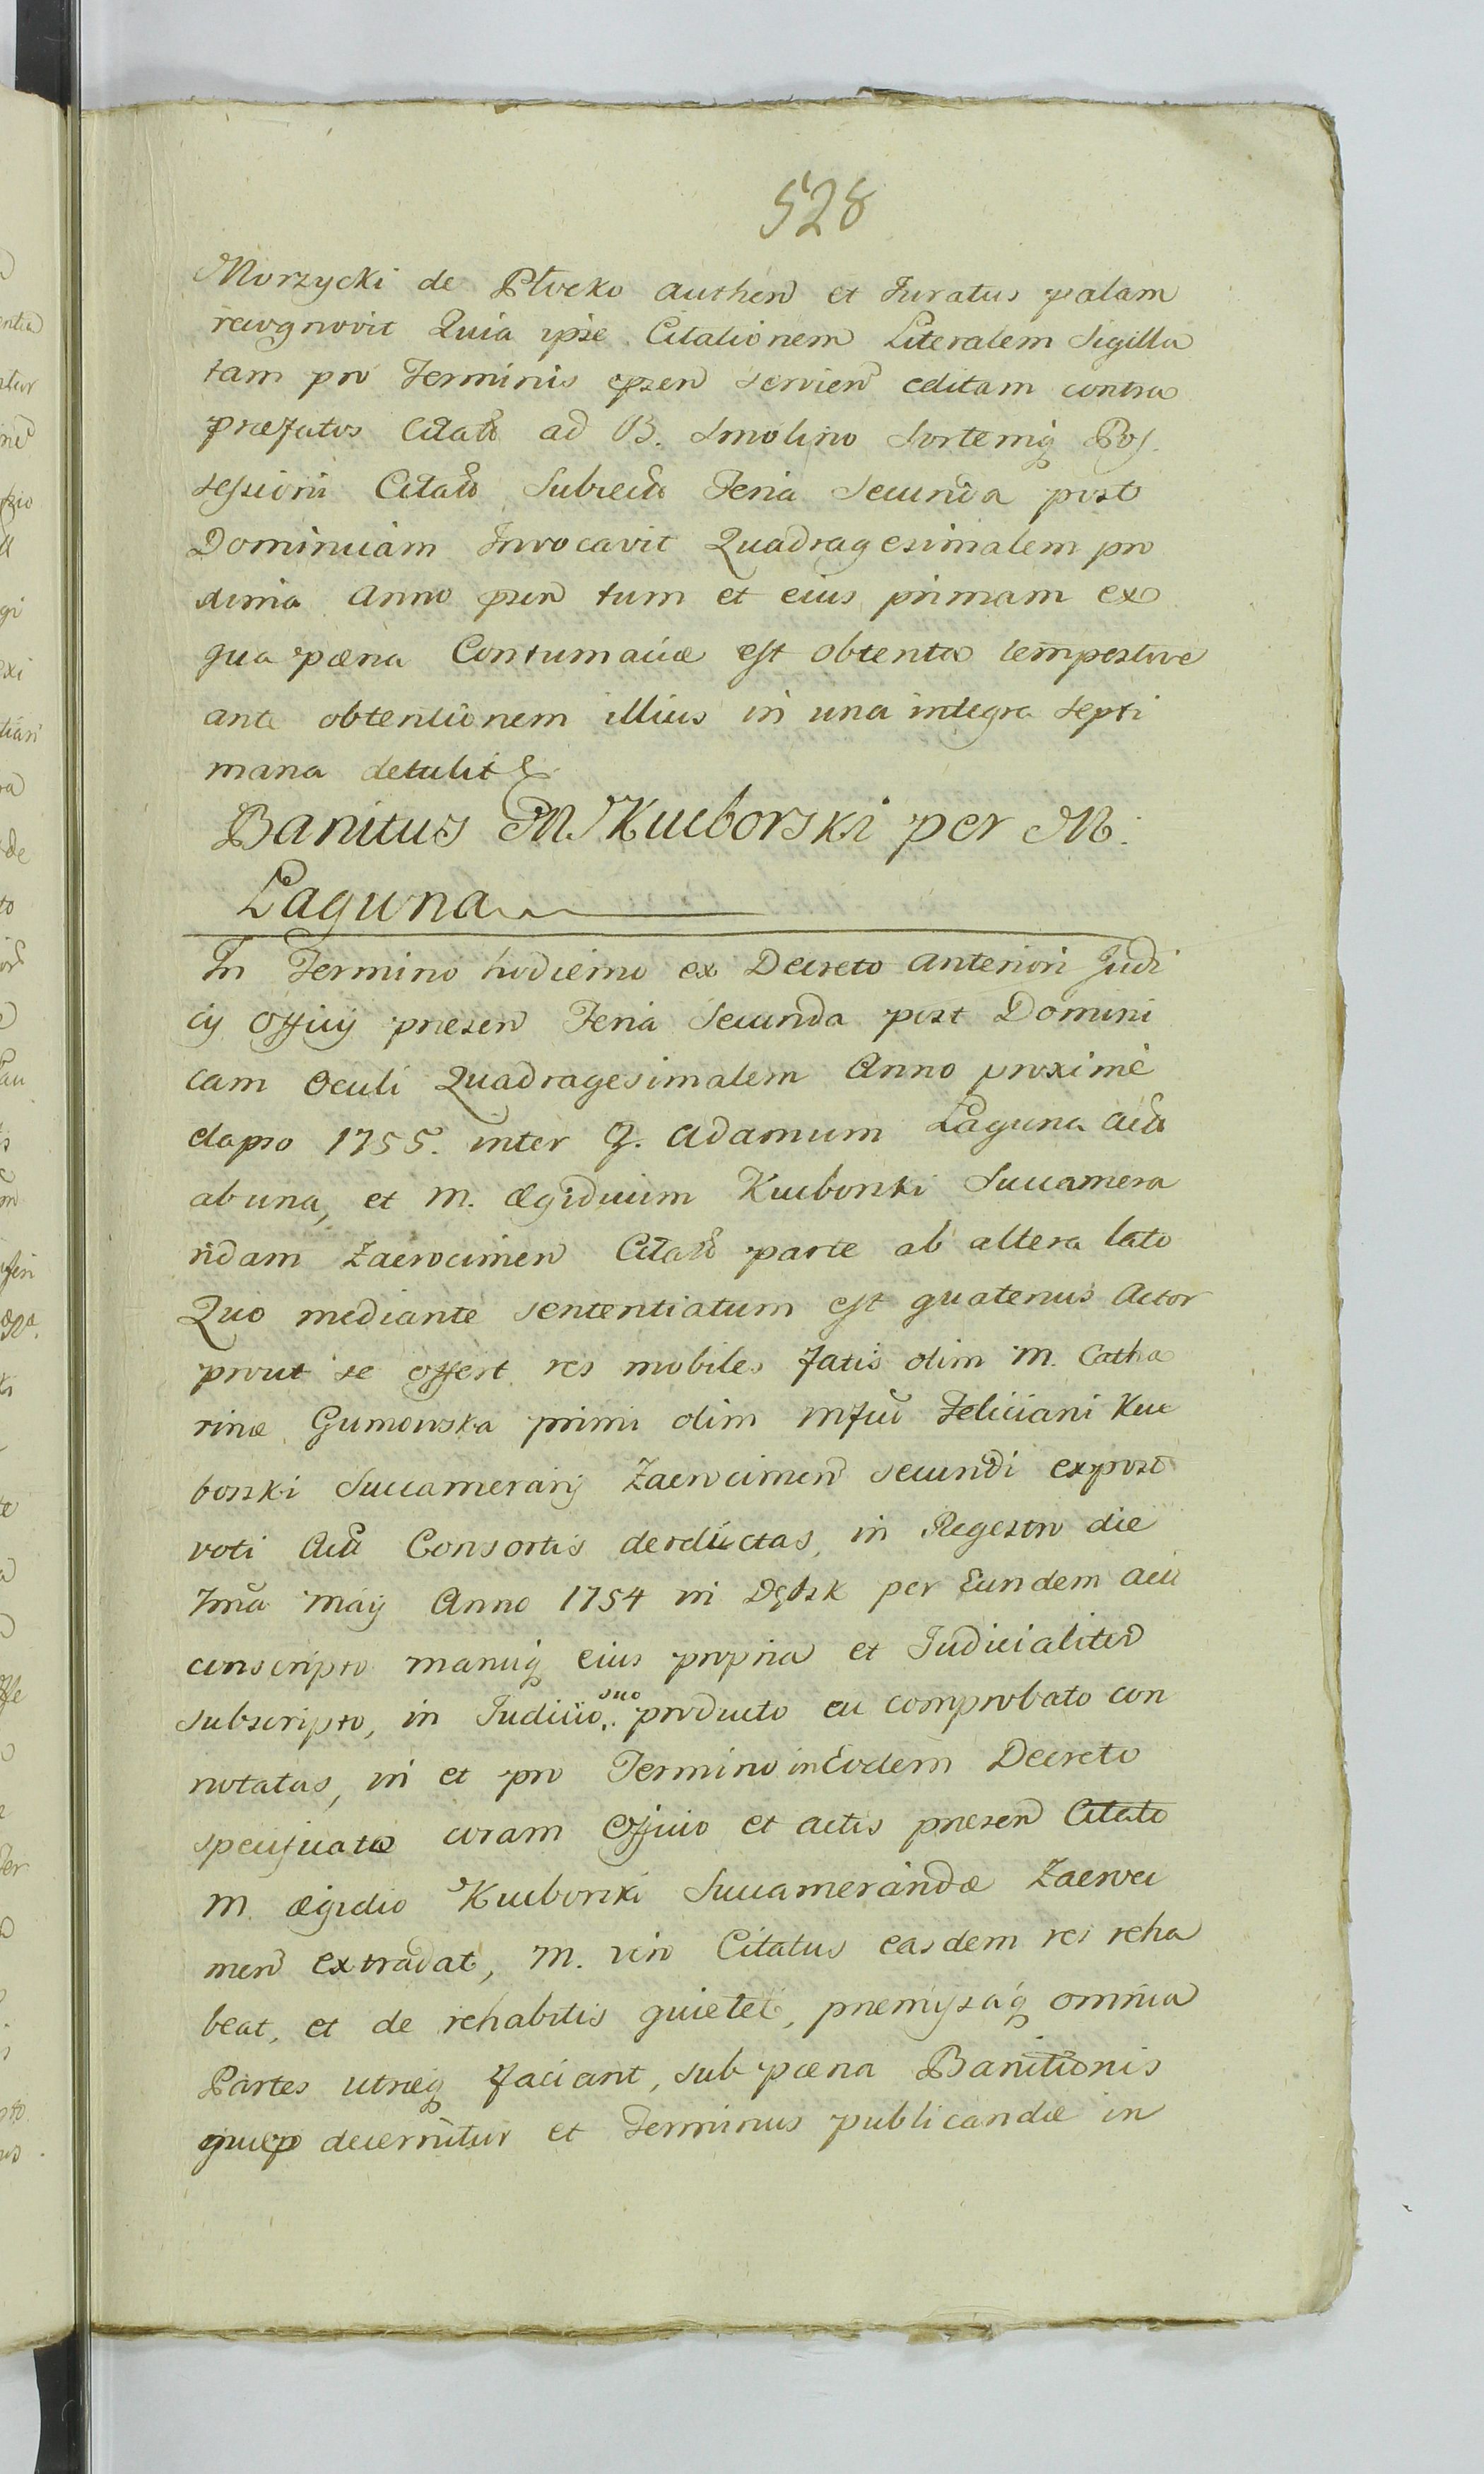 528
Morzycki de Płocko authen et Juratus palam
recognovit Quia ipse Citationem Literalem Sigilla
tam pro Terminis psen servien editam contra
præfatos Citatos ad B. Smolino Sortemq Pos
sessionis Citatos Subrecto Feria Secunda post
Dominicam Invocavit Quadragesimalem pro
xima Anno psen tum et eius primam ex
qua pæna Contumaciæ est obtenta tempestive
ante obtentionem illius in una integra septi
mana detulit &
Banitus M Kucborski per M.
Laguna
In Termino hodierno ex Decreto anteriori Judi
cij Officij præsen Feria Secunda post Domini
cam Oculi Quadragesimalem Anno proximè
elapso 1755. inter G. Adamum Laguna
ab una, et M. Ægidium Kucborski Succamera
ridam Zaewcimen Citatos parte ab altera lato
Quo mediante sententiatum est quatenus Actor
prout se offert res mobiles fatis olim M. Catha
rinæ Gumowska primi olim Mfici Feliciani Kuc
borski Succamerarij Zaewcimen secundi expost
voti Consortis derelictas, in Regestro die
7ma Maij Anno 1754 in Dębsk per Eundem
conscripto manuq eius propria et Judicialiter
subscripto, in Judicio suo producto ac comprobato con
notatas, in et pro Termino in Eodem Decreto
specificato coram Officio et actis præsen Citato
M. Ægidio Kucborski Succameraridæ Zaewci
men extradat, M. vero Citatus easdem res reha
beat, et de rehabitis quietet, præmissaq omnia
Partes utræq faciant, sub pæna Banitionis
decernitur et Terminus publicandæ in